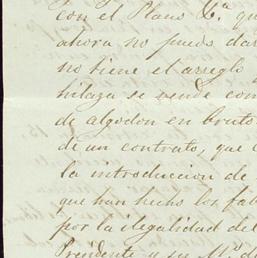 con el Plano &.ª qu
ahora no puedo dar
no tiene el arreglo
hilaza se vende com
de algodon en bruto
de un contrato, que
la introduccion de
que han hecho los fab
por la ilegalidad del
Presidente y su M.º d